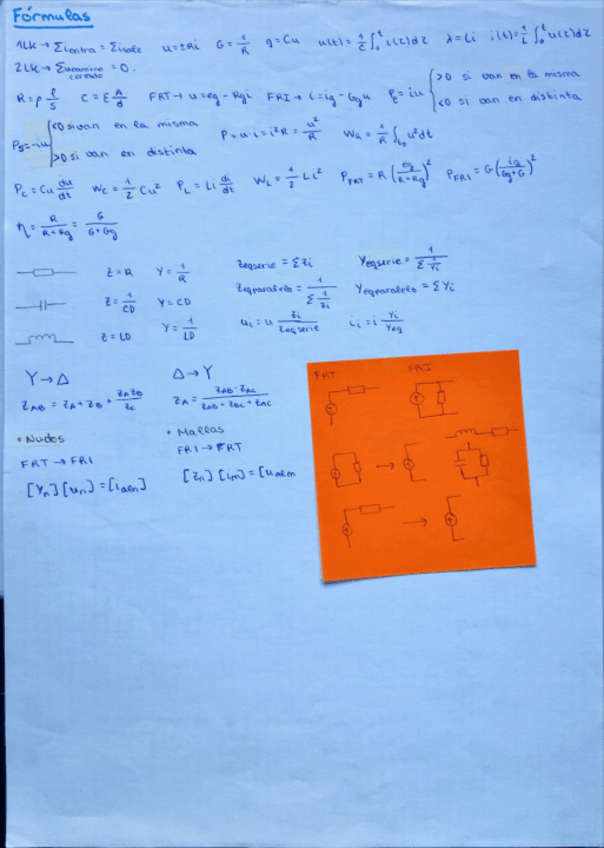 Fórmulas
1LK → Σientra = Σisale   u=±Ri   G = 1/R   q = Cu   u(t) = 1/C ∫₀ᵗ i(τ)dτ   λ = Li   i(t) = 1/L ∫₀ᵗ u(τ)dτ
2LK → Σucamino cerrado = 0.
R = ρ l/s   C = ε A/d   FRT → u = eg - Rgi   FRI → i = ig - Ggu   = iu { >0 si van en la misma
<0 si van en distinta
= -iu { <0 si van en la misma   P = u·i = i²R = u²/R   W_R = 1/R ∫ u²dt
>0 si van en distinta
P_C = Cu du/dt   W_C = 1/2 Cu²   P_L = Li di/dt   W_L = 1/2 Li²   P_FRT = R (eg/(R+Rg))²   P_FRI = G (ig/(Gg+G))²
η = R/(R+Rg) = G/(G+Gg)
Z = R   Y = 1/R   Zeqserie = ΣZi   Yeqserie = 1/(Σ 1/Yi)
Z = 1/CD   Y = CD   Zeqparalelo = 1/(Σ 1/Zi)   Yeqparalelo = ΣYi
Z = LD   Y = 1/LD   ui = u Zi/Zeqserie   ii = i Yi/Yeq
Y → Δ   Δ → Y
Z_AB = Z_A + Z_B + Z_A Z_B/Z_C   Z_A = Z_AB · Z_AC/(Z_AB + Z_BC + Z_AC)
• Nudos   • Mallas
FRT → FRI   FRI → FRT
[Yn] [un] = [ialn]   [Zn] [im] = [ualm
FRT   FRI
→
→